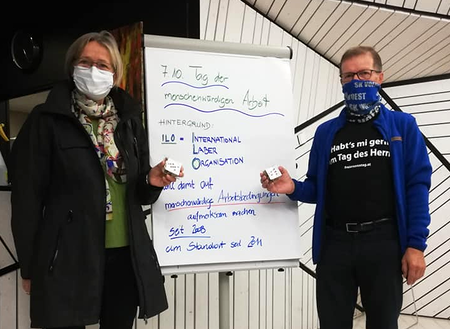 7.10. Tag der
menschenwürdigen Arbeit
HINTERGRUND:
ILO = INTERNATIONAL
LABER
ORGANISATION
auf
menschenwürdige Arbeitsbedingungen
aufmerksam machen
seit 2008
am Standort seit 2011
Habt's mi gern
am Tag des Herrn